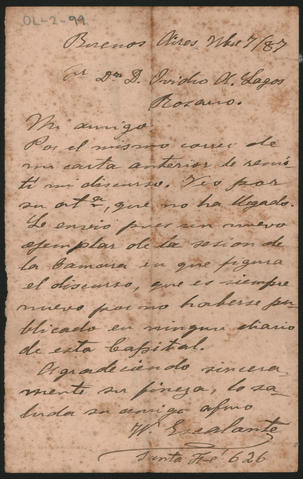 OL-2-99.
Buenos Aires, Nbre 7/87
Sr Dn D. Ovidio A. Lagos
Rosario.
Mi amigo
Por el mismo correo de
mi carta anterior le remi-
tí mi discurso. Veo por
su atª, que no ha llegado.
Le envio pues un nuevo
ejemplar de la sesion de
la Cámara en que figura
el discurso, que es siempre
nuevo por no haberse pu-
blicado en ningun diario
de esta Capital.
Agradeciendo sincera-
mente su fineza, lo sa-
luda su amigo afmo
W. Escalante
Santa Fé 626